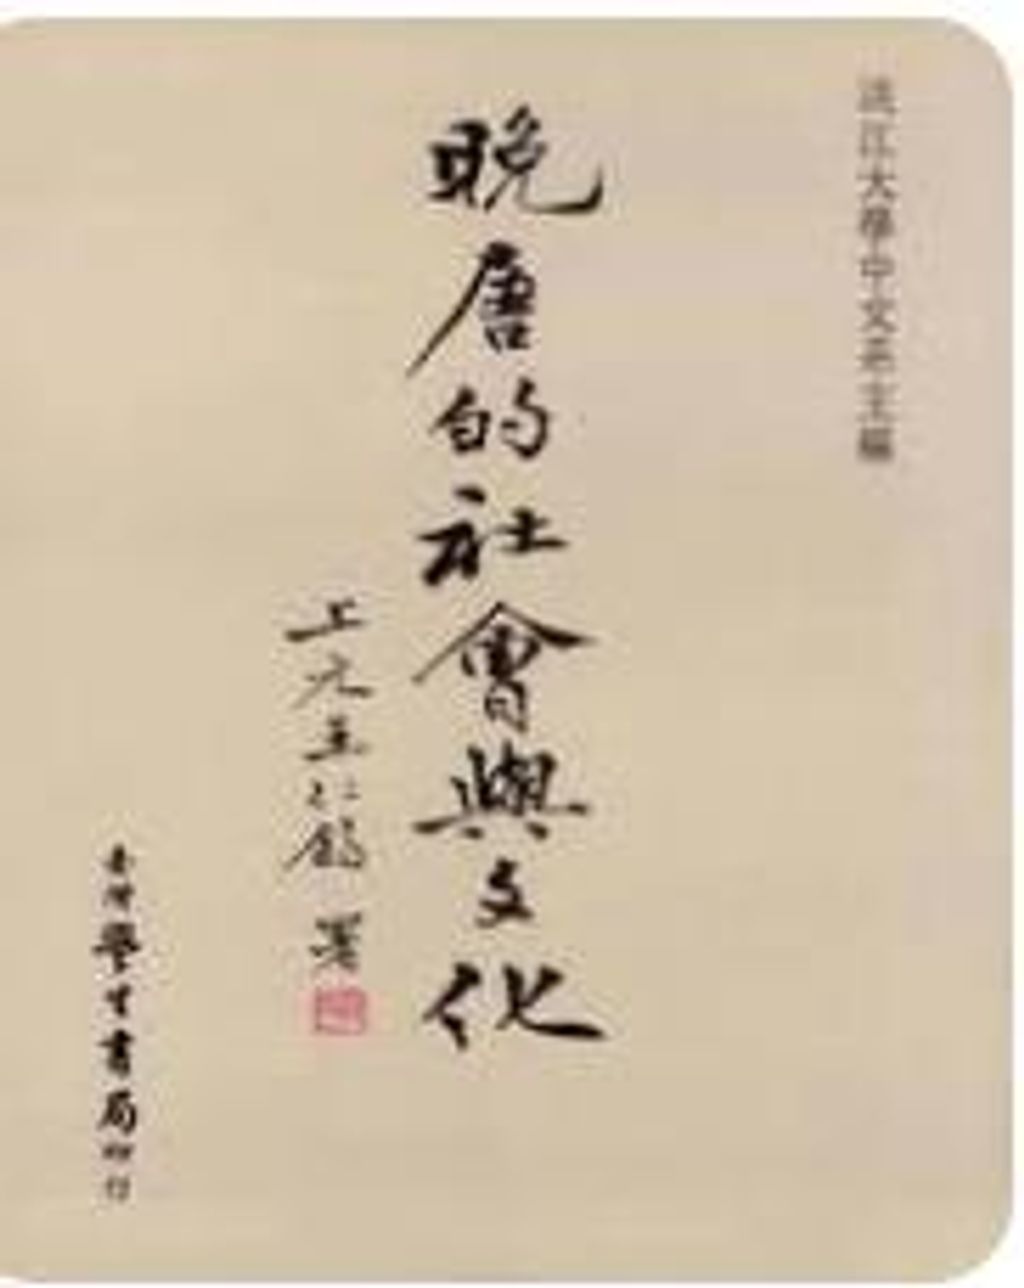 淡江大學中文系主編
晚唐的社會與文化
上元王仁鈞 署
臺灣學生書局印行